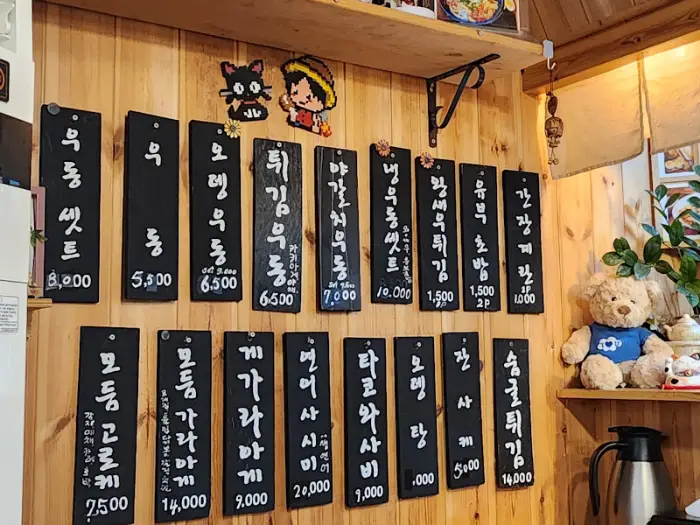 우동셋트
8,000
우동
5,500
오뎅우동
Set 9.000
6.500
튀김우동
카키아게야채
6500
야갈치우동
7000
냉우동셋트
10.000
왕새우튀김
1,500
유부초밥
1,500
2P
간장계란
1.000
모둠고로케
7,500
모둠가라아게
14,000
게가라아게
9.000
연어사시미
20,000
타코와사비
9,000
오뎅탕
잔사케
5000
솜굴튀김
14,000